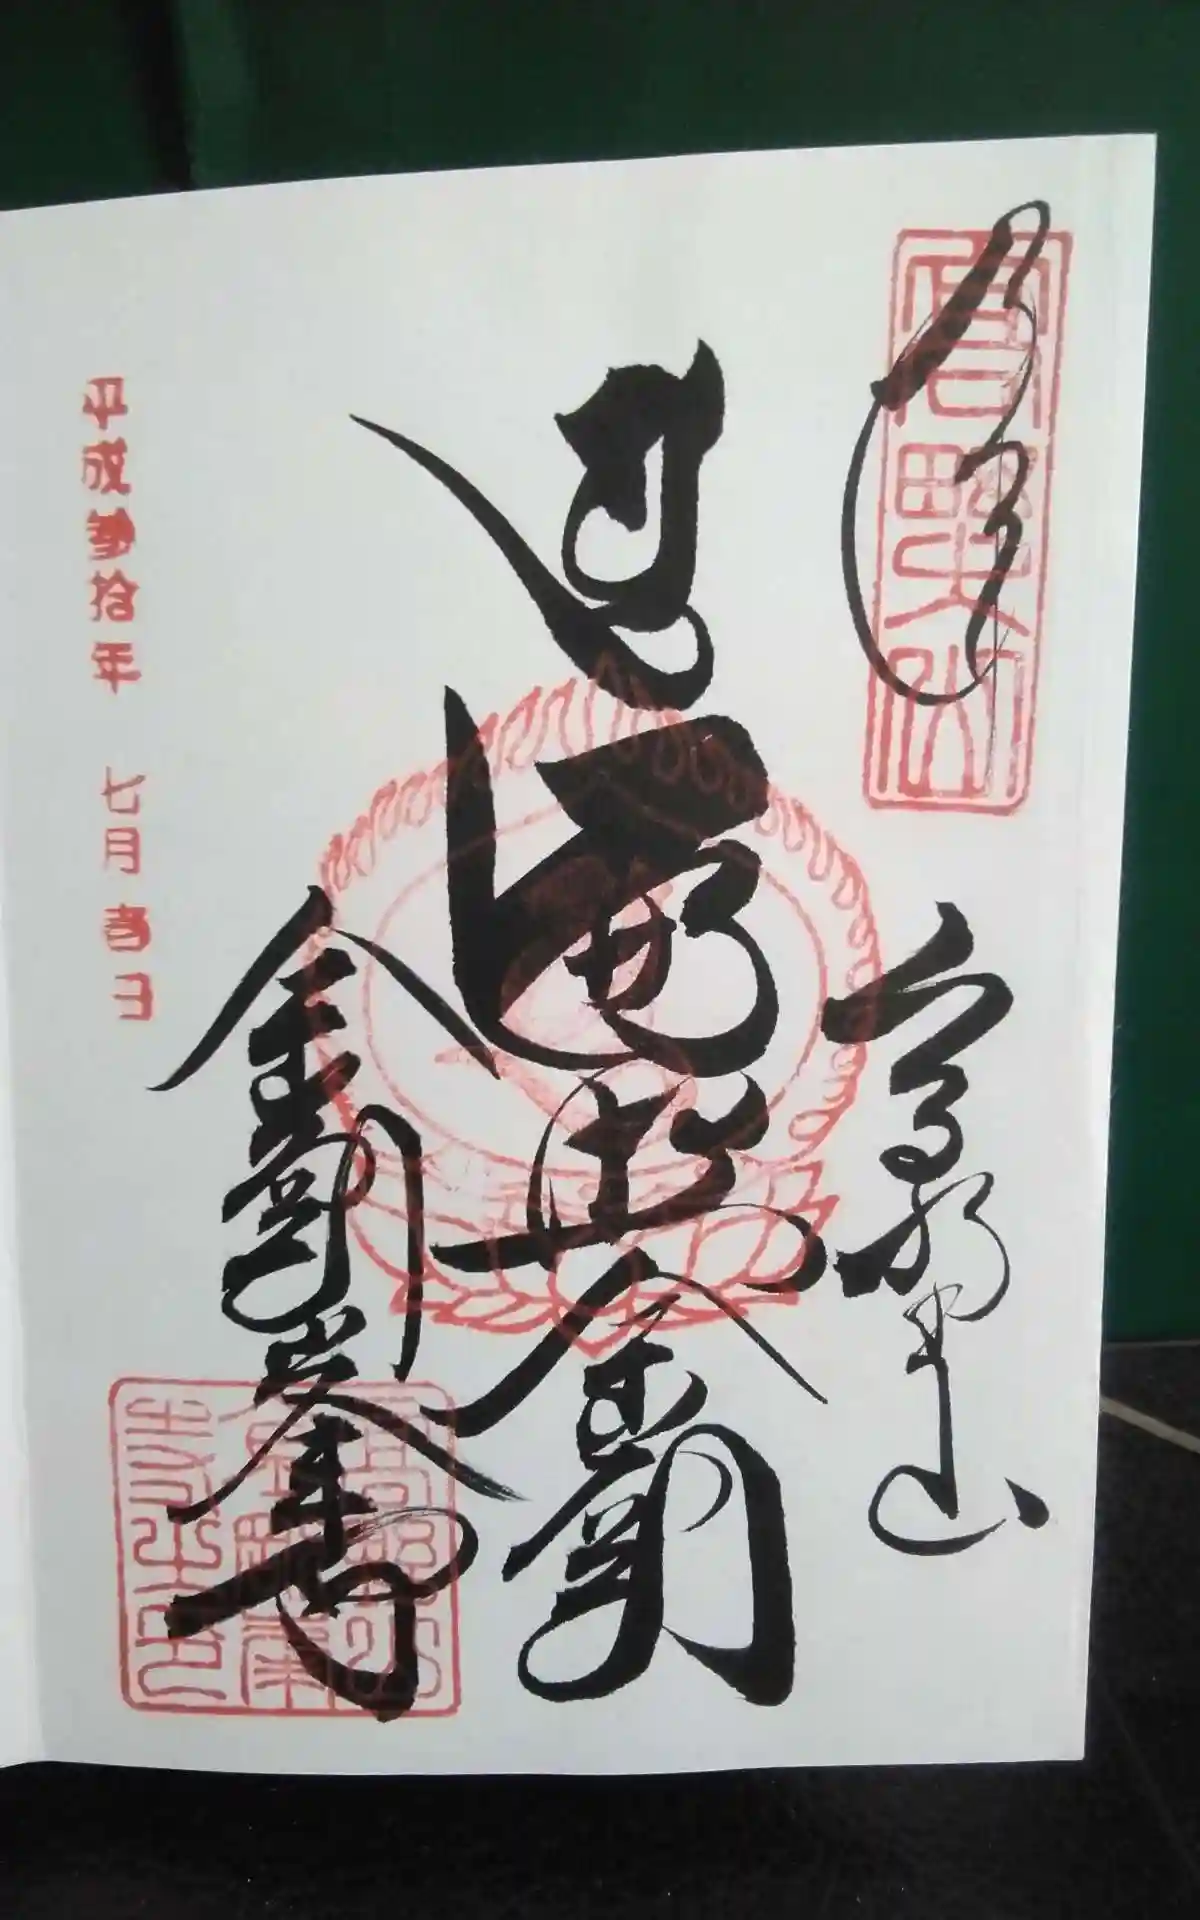 奉拝
高野山
高野山
遍照金剛
金剛峯寺
高野山
金剛峯
寺之印
平成参拾年 七月 日